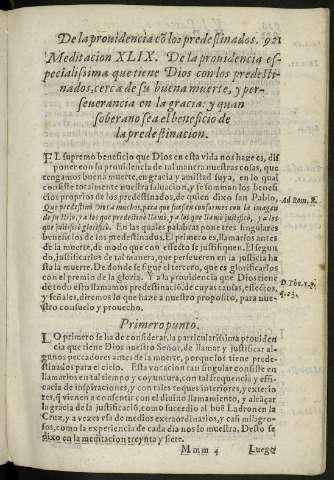 De la prouidencia cõ los predestinados. 921
Meditacion XLIX. De la prouidencia es-
pecialissima que tiene Dios con los predesti-
nados, cerca de su buena muerte, y per-
seuerancia en la gracia: y quan
soberano sea el beneficio de
la predestinacion.
EL supremo beneficio que Dios en esta vida nos haze es, dis-
poner con su prouidencia de tal manera nuestras cosas, que
tengamos buena muerte, en gracia y amistad suya, en lo qual
consiste totalmente nuestra saluacion, y se summan los benefi
cios proprios de los predestinados, de quien dixo san Pablo,
Que predestinò Dios a muchos, para que fuessen conformes con la imagen
de su Hijo, y a los que predestinò llamò, y a los que llamò justificò, y a los
que justificò glorificò. En las quales palabras pone tres singulares
beneficios de los predestinados. El primero es, llamarlos antes
de la muerte, de modo que con efecto se justifiquen. El segun
do, justificarlos de tal manera, que perseueren en la justicia ha
sta la muerte. De donde se sigue el tercero, que es glorificarlos
con el premio de la gloria. Y a la prouidencia que Dios tiene
de todo esto llamamos predestinaciõ, de cuyas causas, efectos,
y señales, diremos lo que haze a nuestro proposito, para nue-
stro consuelo y prouecho.
Ad Rom. 8.
D. Tho. 1. p.
q. 23.
Primero punto.
LO primero se ha de considerar, la particularissima prouiden
cia que tiene Dios nuestro Señor, de llamar y justificar al-
gunos peccadores antes de la muerte, porque los tiene prede-
stinados para el cielo. Esta vocacion tan singular consiste en
llamarlos en tal tiempo y coyuntura, con tal frequencia y effi-
cacia de inspiraciones, y con tales toques interiores, y exterio-
res, q̃ vienen a consentir con el diuino llamamiento, y alcãçar
la gracia de la justificaciõ, como sucedio al buẽ Ladron en la
Cruz, y a vezes vsa de medios extraordinarios, y casi milagro-
sos, como la experiencia de cada dia nos lo muestra. Desto se
dixo en la meditacion treynta y siete.
Mmm 4 Luego